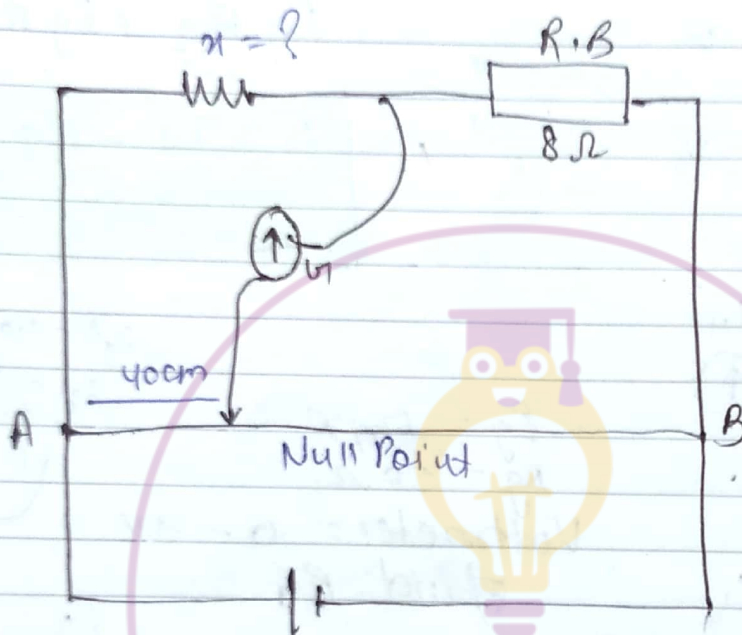 x = ?
R.B
8 Ω
G
40cm
A
B
Null Point